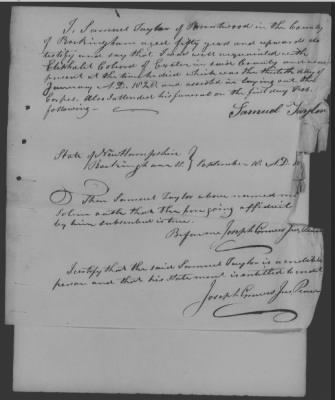 I, Samuel Taylor of Brentwood in the County
of Rockingham aged fifty years and upwards do
testify and say that I was well acquainted with
Eliphalet Colcord of Exeter in said County and was
present at the time he died which was the thirtieth day of
January A.D. 1826 and assisted in laying out the
Corpse. Also I attended his funeral on the first day Feb.
following.
Samuel Taylor
State of New Hampshire
Rockingham ss. } September 18. A.D. 18
Then Samuel Taylor above named made
solemn oath that the foregoing affidavit
by him subscribed is true.
Before me Joseph Jus. Peace
I certify that the said Samuel Taylor is a credible
person and that his statement is entitled to credit
Joseph Jus Peace